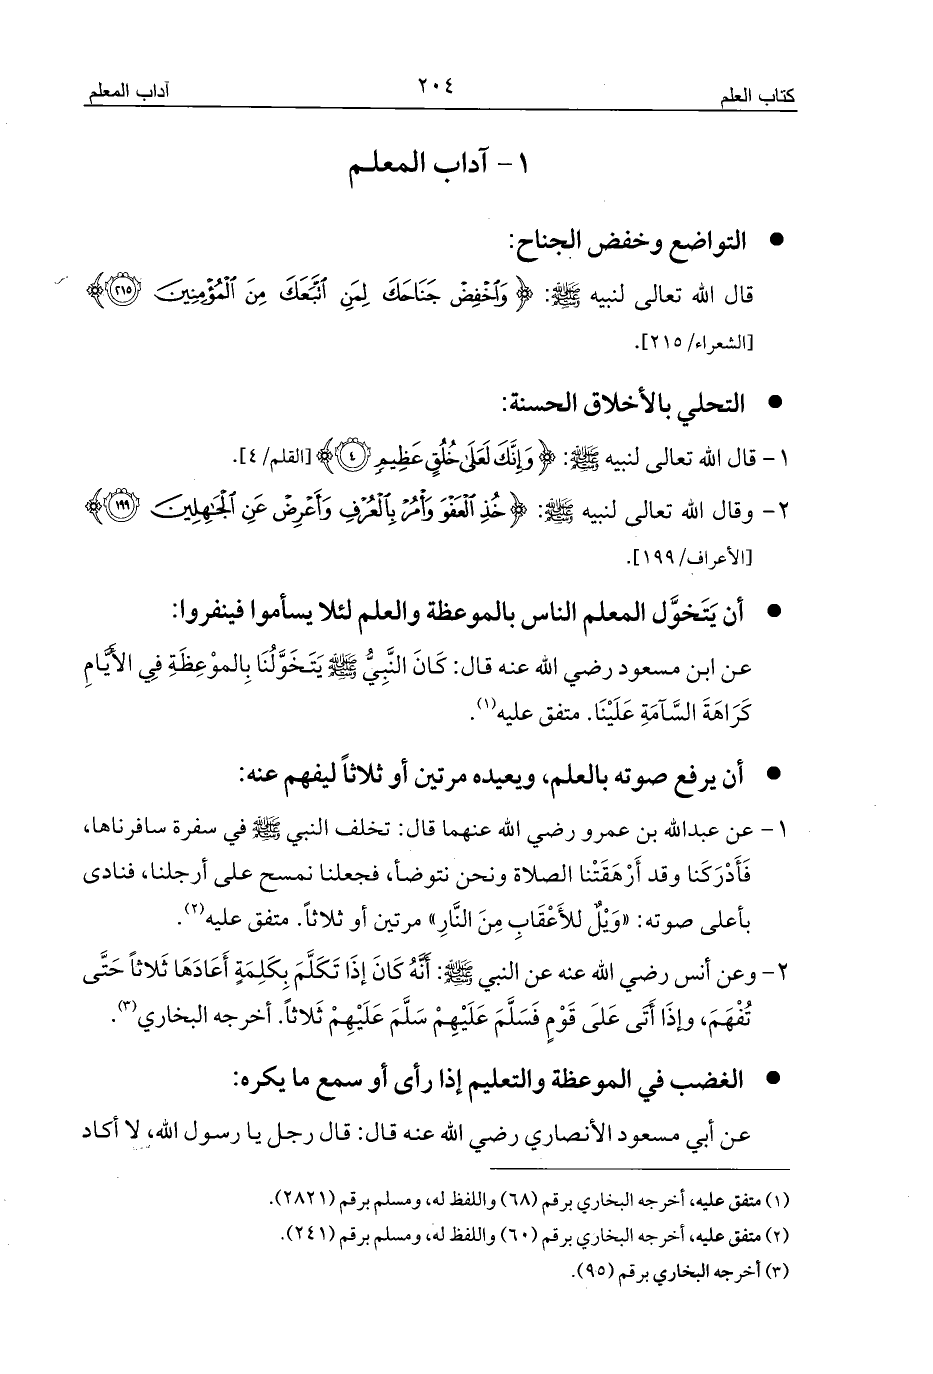 كتاب العلم ٢٠٤ آداب المعلم
١- آداب المعلم
● التواضع وخفض الجناح:
قال الله تعالى لنبيه ﷺ: ﴿ وَٱخْفِضْ جَنَاحَكَ لِمَنِ ٱتَّبَعَكَ مِنَ ٱلْمُؤْمِنِينَ ٢١٥﴾
[الشعراء/ ٢١٥].
● التحلي بالأخلاق الحسنة:
١- قال الله تعالى لنبيه ﷺ: ﴿ وَإِنَّكَ لَعَلَىٰ خُلُقٍ عَظِيمٍ ٤﴾ [القلم/ ٤].
٢- وقال الله تعالى لنبيه ﷺ: ﴿ خُذِ ٱلْعَفْوَ وَأْمُرْ بِٱلْعُرْفِ وَأَعْرِضْ عَنِ ٱلْجَٰهِلِينَ ١٩٩﴾
[الأعراف/ ١٩٩].
● أن يَتَخوَّل المعلم الناس بالموعظة والعلم لئلا يسأموا فينفروا:
عن ابن مسعود رضي الله عنه قال: كَانَ النَّبِيُّ ﷺ يَتَخَوَّلُنَا بِالموْعِظَةِ فِي الأَيَّامِ
كَرَاهَةَ السَّآمَةِ عَلَيْنَا. متفق عليه(١).
● أن يرفع صوته بالعلم، ويعيده مرتين أو ثلاثاً ليفهم عنه:
١- عن عبدالله بن عمرو رضي الله عنهما قال: تخلف النبي ﷺ في سفرة سافرناها،
فَأَدْرَكَنا وقد أَرْهَقَتْنا الصلاة ونحن نتوضأ، فجعلنا نمسح على أرجلنا، فنادى
بأعلى صوته: «وَيْلٌ للأَعْقَابِ مِنَ النَّارِ» مرتين أو ثلاثاً. متفق عليه(٢).
٢- وعن أنس رضي الله عنه عن النبي ﷺ: أَنَّهُ كَانَ إِذَا تَكَلَّمَ بِكَلِمَةٍ أَعَادَهَا ثَلاثاً حَتَّى
تُفْهَمَ، وإِذَا أَتَى عَلَى قَوْمٍ فَسَلَّمَ عَلَيْهِمْ سَلَّمَ عَلَيْهِمْ ثَلاثاً. أخرجه البخاري(٣).
● الغضب في الموعظة والتعليم إذا رأى أو سمع ما يكره:
عن أبي مسعود الأنصاري رضي الله عنه قال: قال رجل يا رسول الله، لا أكاد
(١) متفق عليه، أخرجه البخاري برقم (٦٨) واللفظ له، ومسلم برقم (٢٨٢١).
(٢) متفق عليه، أخرجه البخاري برقم (٦٠) واللفظ له، ومسلم برقم (٢٤١).
(٣) أخرجه البخاري برقم (٩٥).